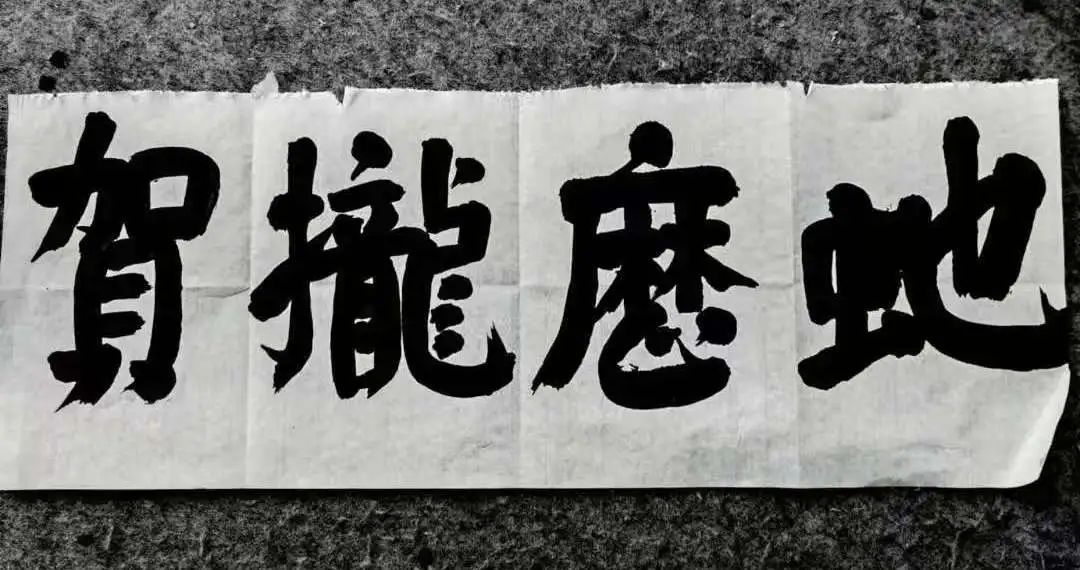 虵麼攏賀